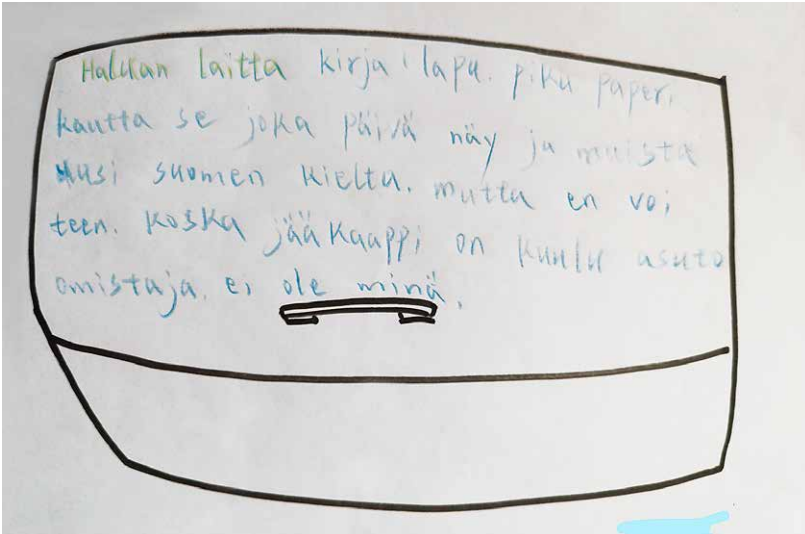 Halukan laitta kirja lapu. piku paperi,
kautta se joka päivä näy ja muista
uusi suomen kielta. mutta en voi
teen. koska jääkaappi on kuulu asuto
omistaja. ei ole minä.